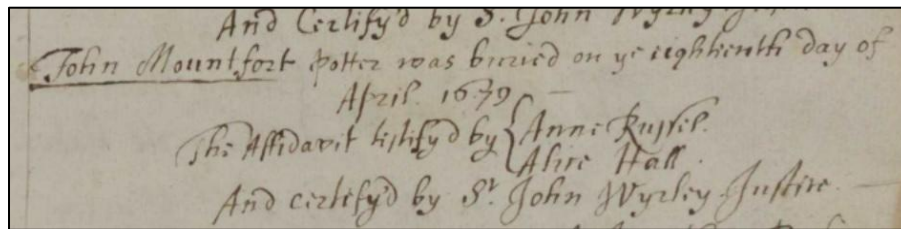 And Certify'd by Sr. John Wyrley Justice
John Mountfort Potter was buried on ye eighteenth day of
April. 1679
The Affidavit testify'd by { Anne Russel.
Alice Hall.
And certify'd by Sr. John Wyrley Justice.